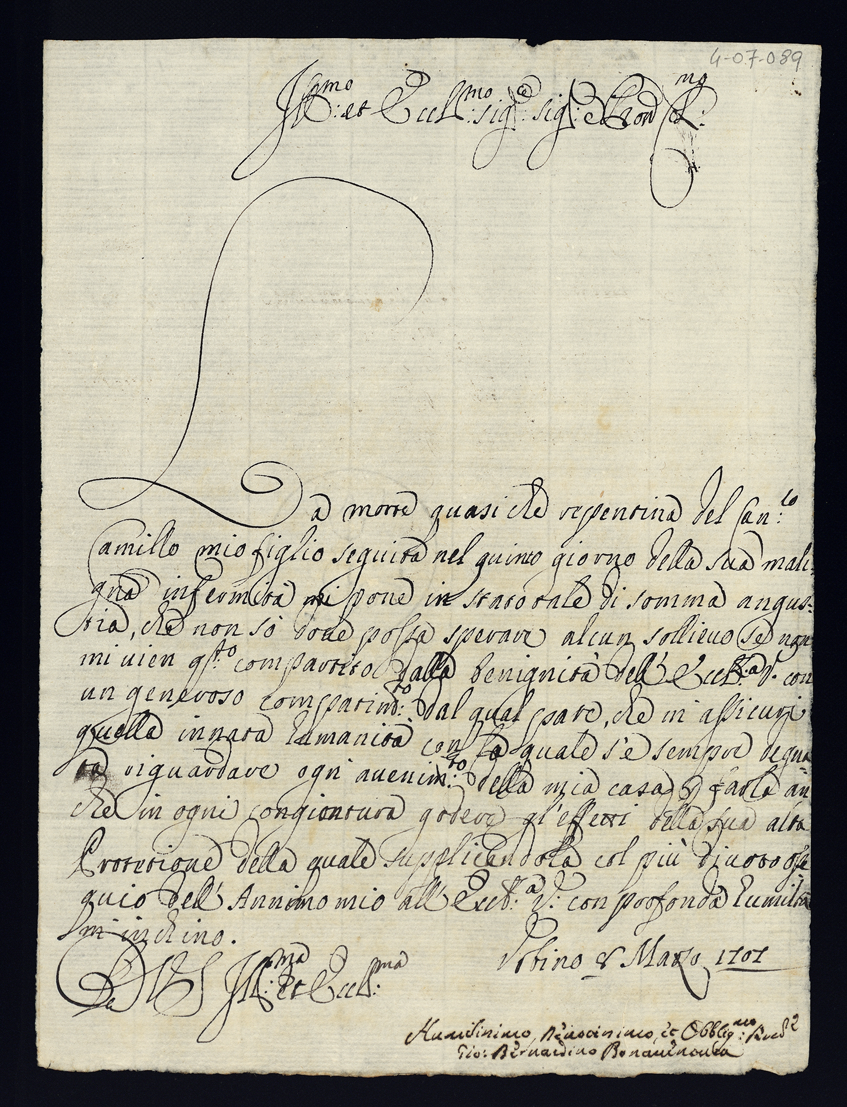 4-07-089
Ill:mo et Eccl:mo sig:re sig: e Pron Col:mo
La morte quasi che repentina del Can:co
Camillo mio figlio seguita nel quinto giorno della sua mali:
gna infermità mi pone in stato tale di somma angus:
tia, che non sò dove possa sperare alcun sollievo se non
mi vien q:to compartito dalla benignità dell' Eccl:a V. con
un generoso compatim:to dal qual parte, che m' assicuri
quella innata humanità con la quale s'è sempre degna
ta riguardare ogni avenim:to della mia casa, e farla an
che in ogni congiontura godere gl'effetti della sua alta
Protetione della quale supplicandola col più divoto osse
quio dell' Annimo mio all' Eccl:a V: con profonda humiltà
mi inchino.
Di V S Ill:ma et Eccl:ma
Urbino 8 Marzo 1707
Humilissimo, Devotissimo, et Obblig:mo Ser:
Gio: Bernardino Bonaventura